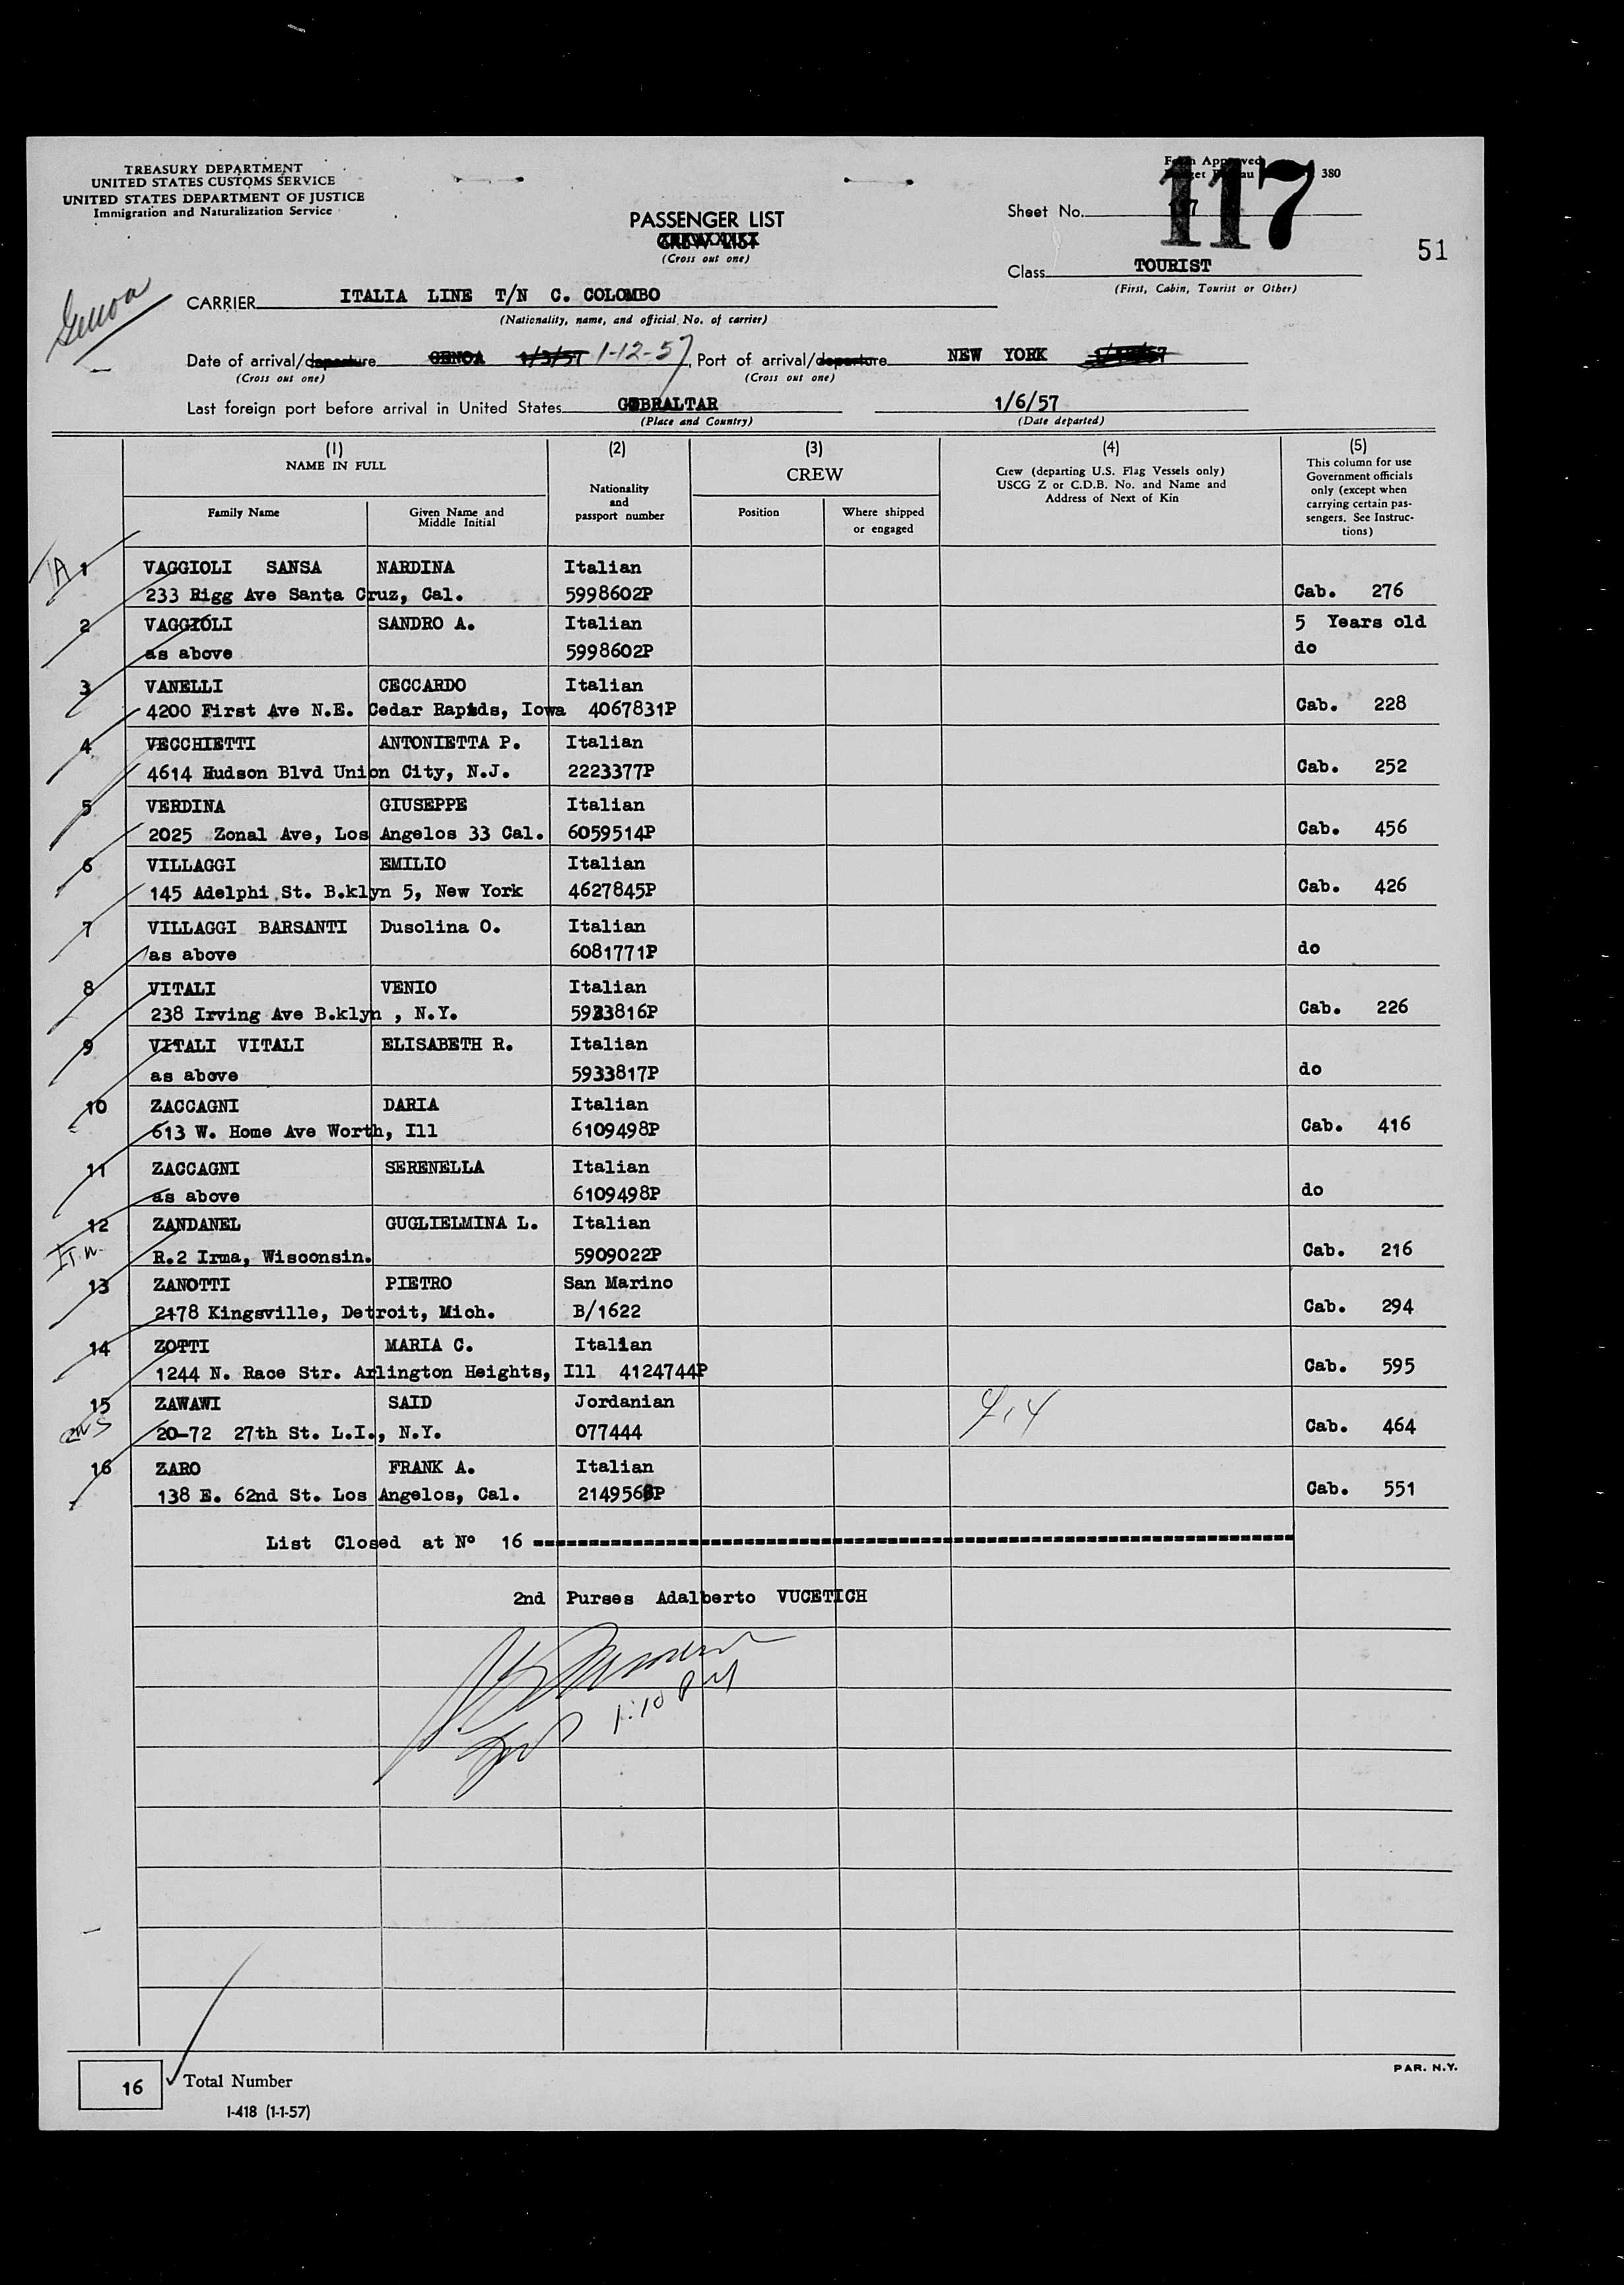 TREASURY DEPARTMENT
UNITED STATES CUSTOMS SERVICE
UNITED STATES DEPARTMENT OF JUSTICE
Immigration and Naturalization Service
Form Approved
380
117
PASSENGER LIST
CREW LIST
(Cross out one)
Sheet No.
51
Class TOURIST
(First, Cabin, Tourist or Other)
Genoa
CARRIER ITALIA LINE T/N C. COLOMBO
(Nationality, name, and official No. of carrier)
Date of arrival/departure GENOA 1/3/57 1-12-57, Port of arrival/departure NEW YORK
(Cross out one) (Cross out one)
Last foreign port before arrival in United States GIBRALTAR 1/6/57
(Place and Country) (Date departed)
(1) (2) (3) (4) (5)
NAME IN FULL
Nationality and passport number
CREW
Crew (departing U.S. Flag Vessels only) USCG Z or C.D.B. No. and Name and Address of Next of Kin
This column for use Government officials only (except when carrying certain passengers. See Instructions)
Family Name Given Name and Middle Initial Position Where shipped or engaged
1 VAGGIOLI SANSA NARDINA Italian
233 Rigg Ave Santa Cruz, Cal. 5998602P Cab. 276
2 VAGGIOLI SANDRO A. Italian 5 Years old
as above 5998602P do
3 VANELLI CECCARDO Italian
4200 First Ave N.E. Cedar Rapids, Iowa 4067831P Cab. 228
4 VECCHIETTI ANTONIETTA P. Italian
4614 Hudson Blvd Union City, N.J. 2223377P Cab. 252
5 VERDINA GIUSEPPE Italian
2025 Zonal Ave, Los Angelos 33 Cal. 6059514P Cab. 456
6 VILLAGGI EMILIO Italian
145 Adelphi St. B.klyn 5, New York 4627845P Cab. 426
7 VILLAGGI BARSANTI Dusolina O. Italian
as above 6081771P do
8 VITALI VENIO Italian
238 Irving Ave B.klyn , N.Y. 5933816P Cab. 226
9 VITALI VITALI ELISABETH R. Italian
as above 5933817P do
10 ZACCAGNI DARIA Italian
613 W. Home Ave Worth, Ill 6109498P Cab. 416
11 ZACCAGNI SERENELLA Italian
as above 6109498P do
12 ZANDANEL GUGLIELMINA L. Italian
R.2 Irma, Wisconsin. 5909022P Cab. 216
13 ZANOTTI PIETRO San Marino
2178 Kingsville, Detroit, Mich. B/1622 Cab. 294
14 ZOTTI MARIA C. Italian
1244 N. Race Str. Arlington Heights, Ill 4124744P Cab. 595
15 ZAWAWI SAID Jordanian
20-72 27th St. L.I., N.Y. 077444 Cab. 464
16 ZARO FRANK A. Italian
138 E. 62nd St. Los Angelos, Cal. Cab. 551
List Closed at Nº 16
2nd Purses Adalberto VUCETICH
1:10 PM
16 Total Number
PAR. N.Y.
I-418 (1-1-57)